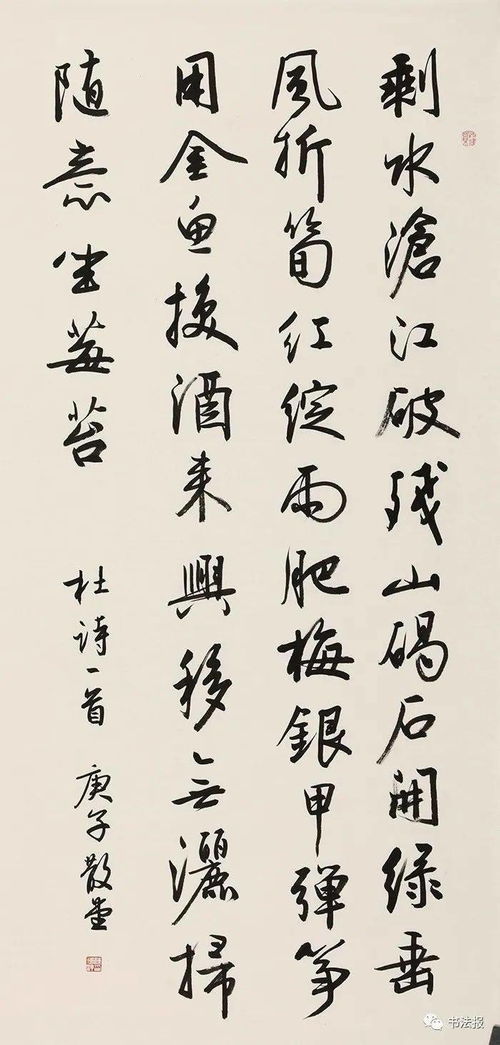 剩水滄江破殘山碣石開绿垂
風折筍红綻雨肥梅銀甲弹筝
用金魚换酒来興移無灑掃
随意坐莓苔
杜诗一首 庚子散堂
书法报